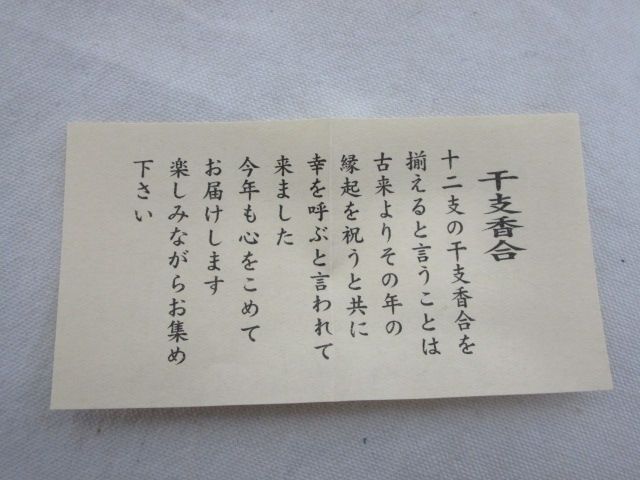 干支香合
十二支の干支香合を
揃えると言うことは
古来よりその年の
縁起を祝うと共に
幸を呼ぶと言われて
来ました
今年も心をこめて
お届けします
楽しみながらお集め
下さい